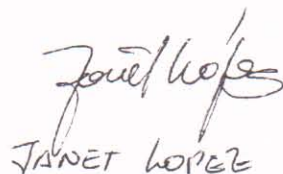 Janet Lopez
JANET LOPEZ